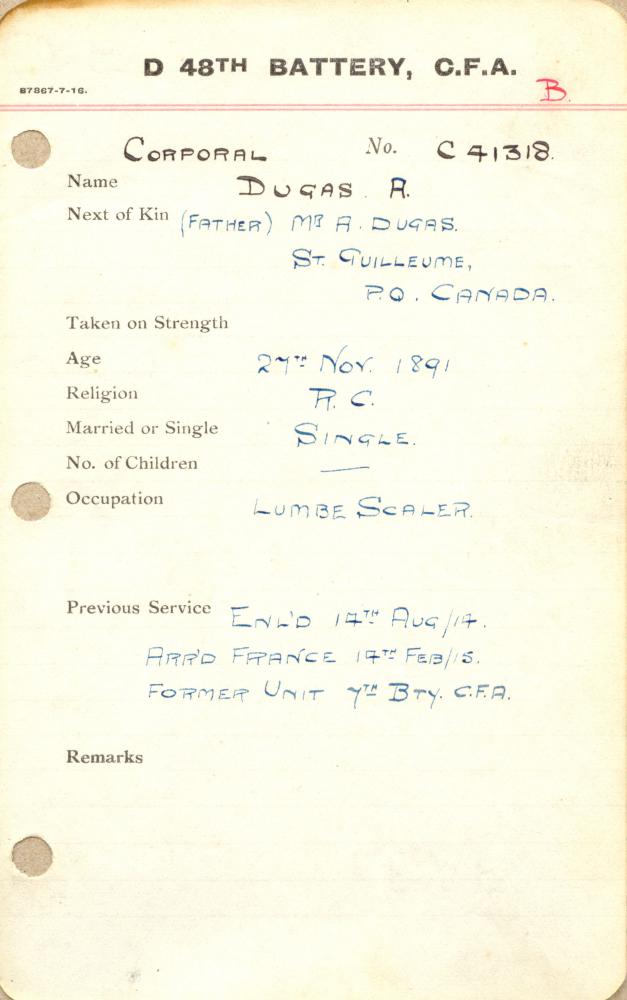 D 48TH BATTERY, C.F.A.
87867-7-16.
B.
CORPORAL No. C 41318.
Name DUGAS. A.
Next of Kin (FATHER) MR A. DUGAS.
ST. GUILLEUME,
P.Q. CANADA.
Taken on Strength
Age 27TH NOV. 1891
Religion R. C.
Married or Single SINGLE.
No. of Children —
Occupation LUMBE SCALER.
Previous Service ENL'D 14TH AUG/14.
ARR'D FRANCE 14TH FEB/15.
FORMER UNIT 7TH BTY. C.F.A.
Remarks